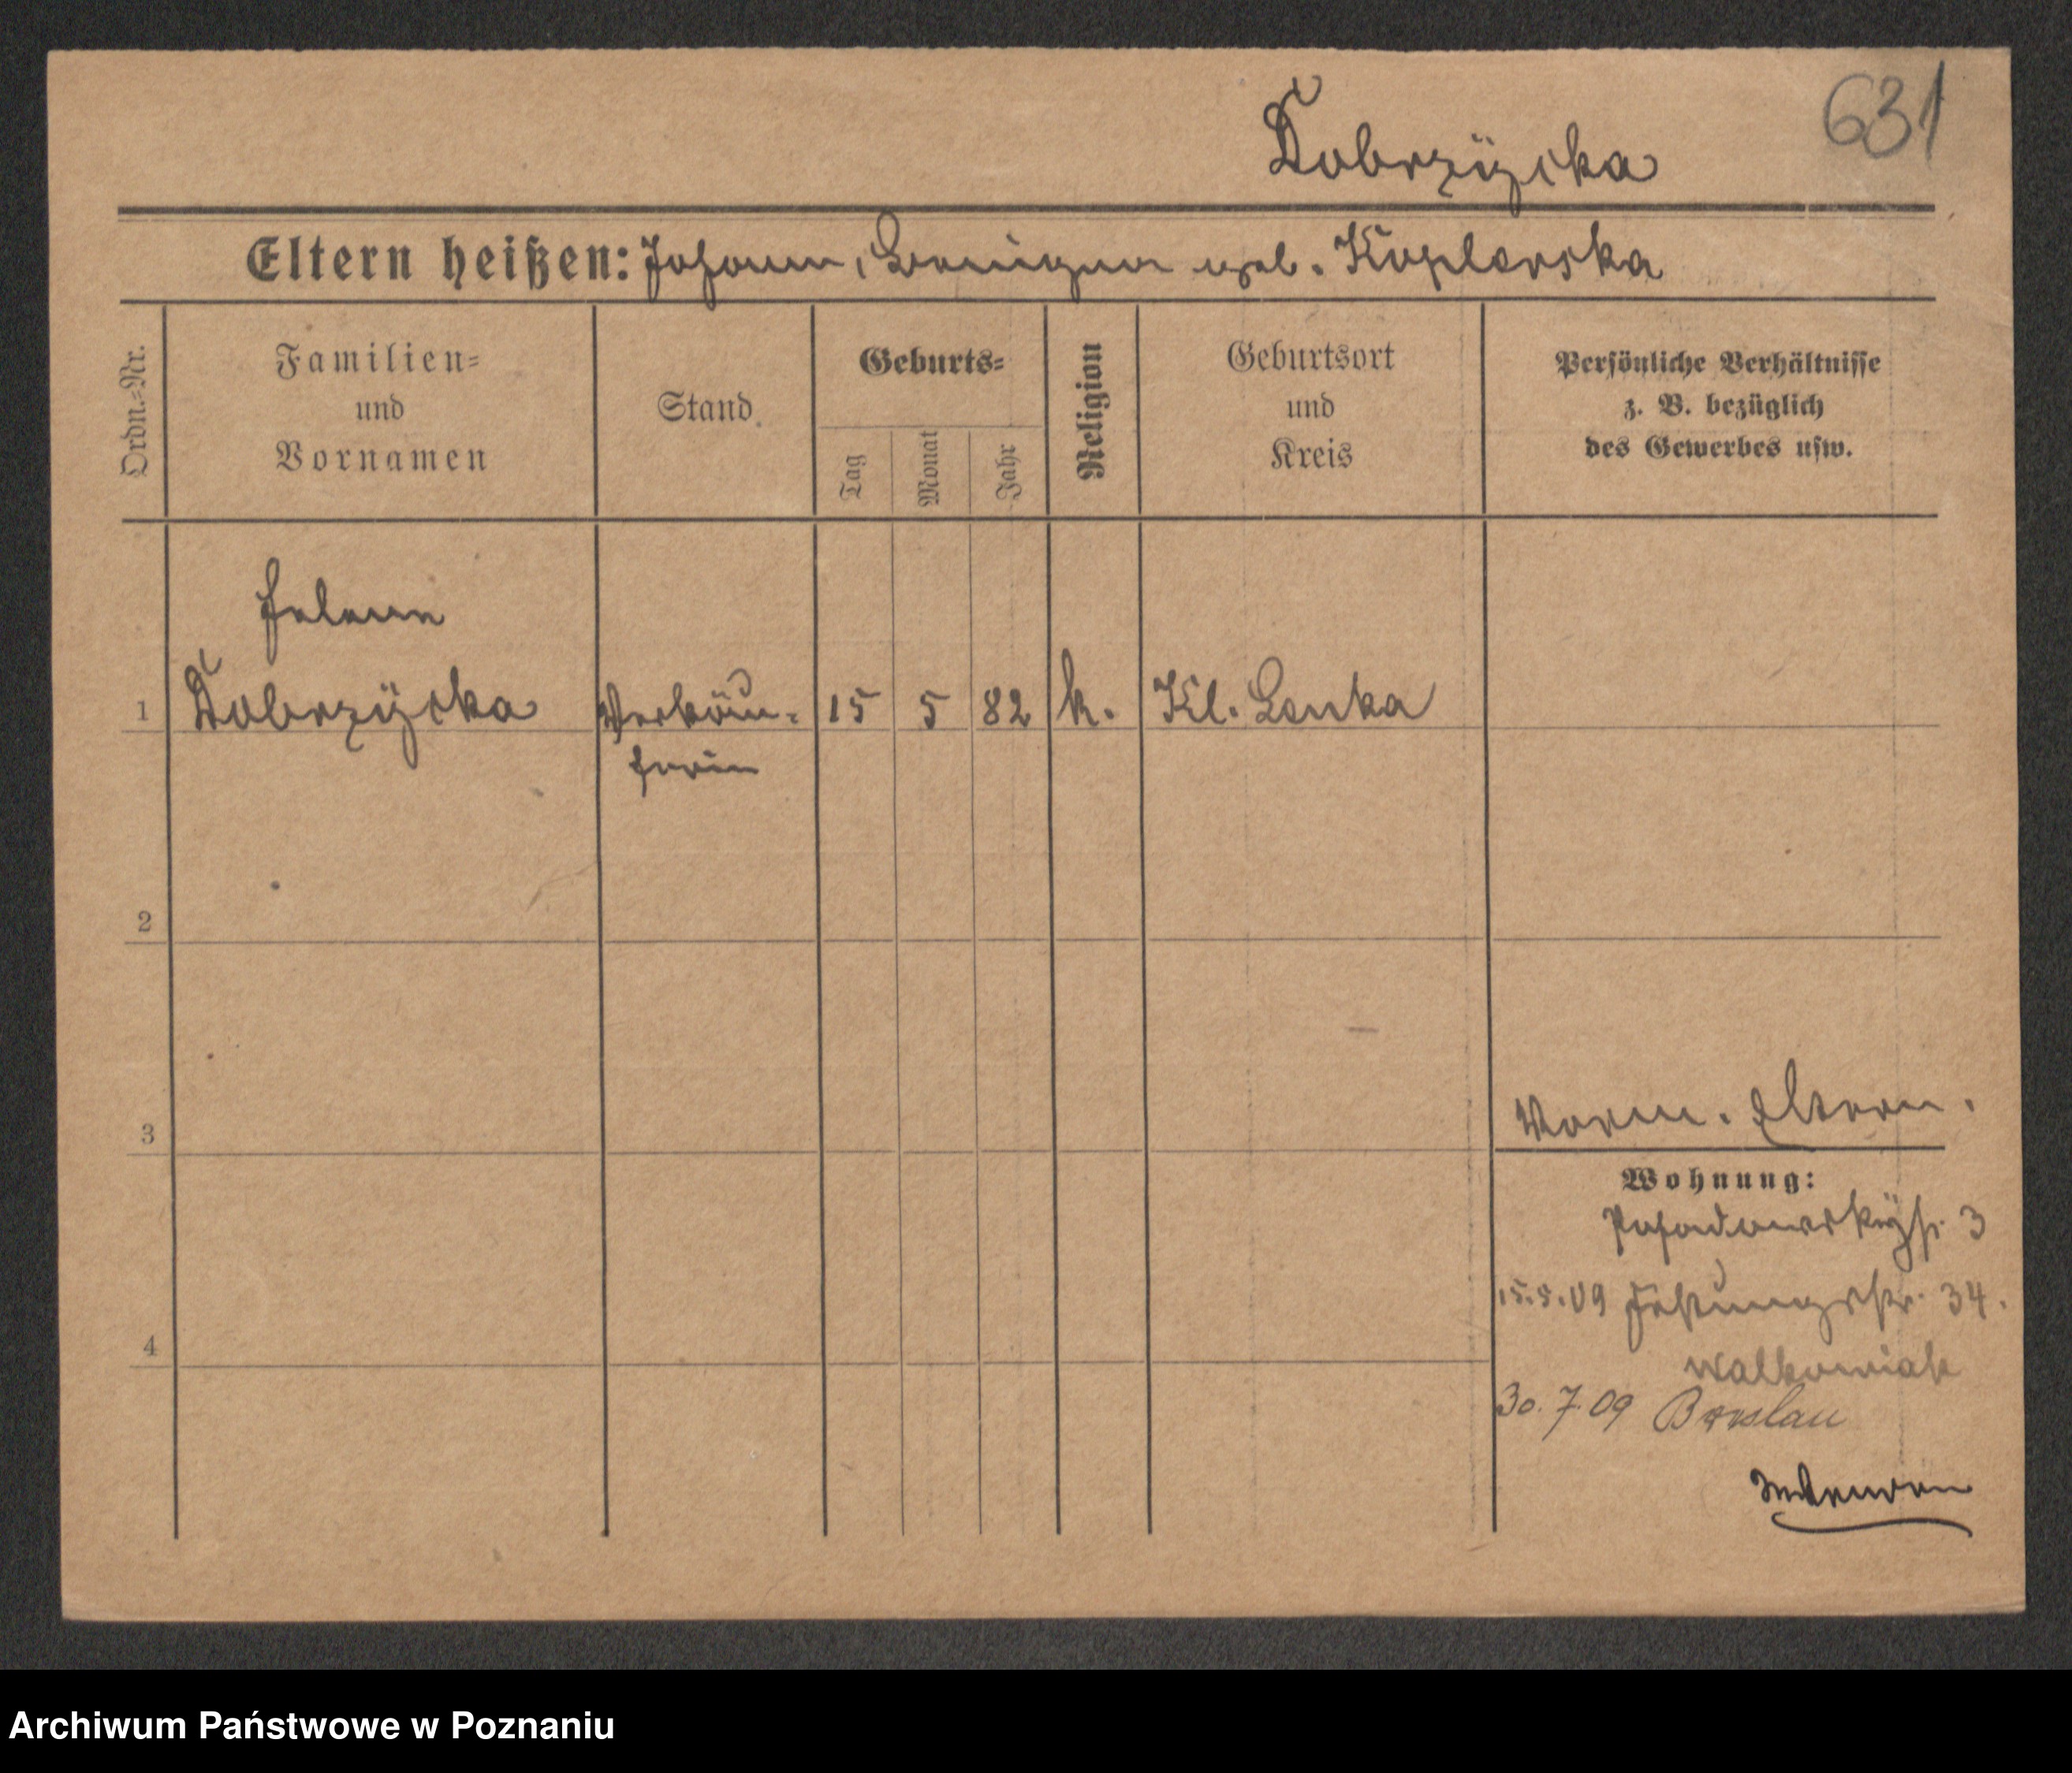 631
Dobrzÿcka
Eltern heißen: Johann, geb.
Ordn.=Nr.
Familien=
und
Vornamen
Stand
Geburts=
Tag
Monat
Jahr
Religion
Geburtsort
und
Kreis
Persönliche Verhältnisse
z. B. bezüglich
des Gewerbes usw.
Helene
1 Dobrzÿcka Verkäu- 15 5 82 k. Kl. Lenka
ferin
2
3
Vorm. Eltern.
Wohnung:
Posadowskÿst. 3
15.5.09 Festungsstr. 34.
Walkowiak
4
30.7.09 Breslau
Archiwum Państwowe w Poznaniu